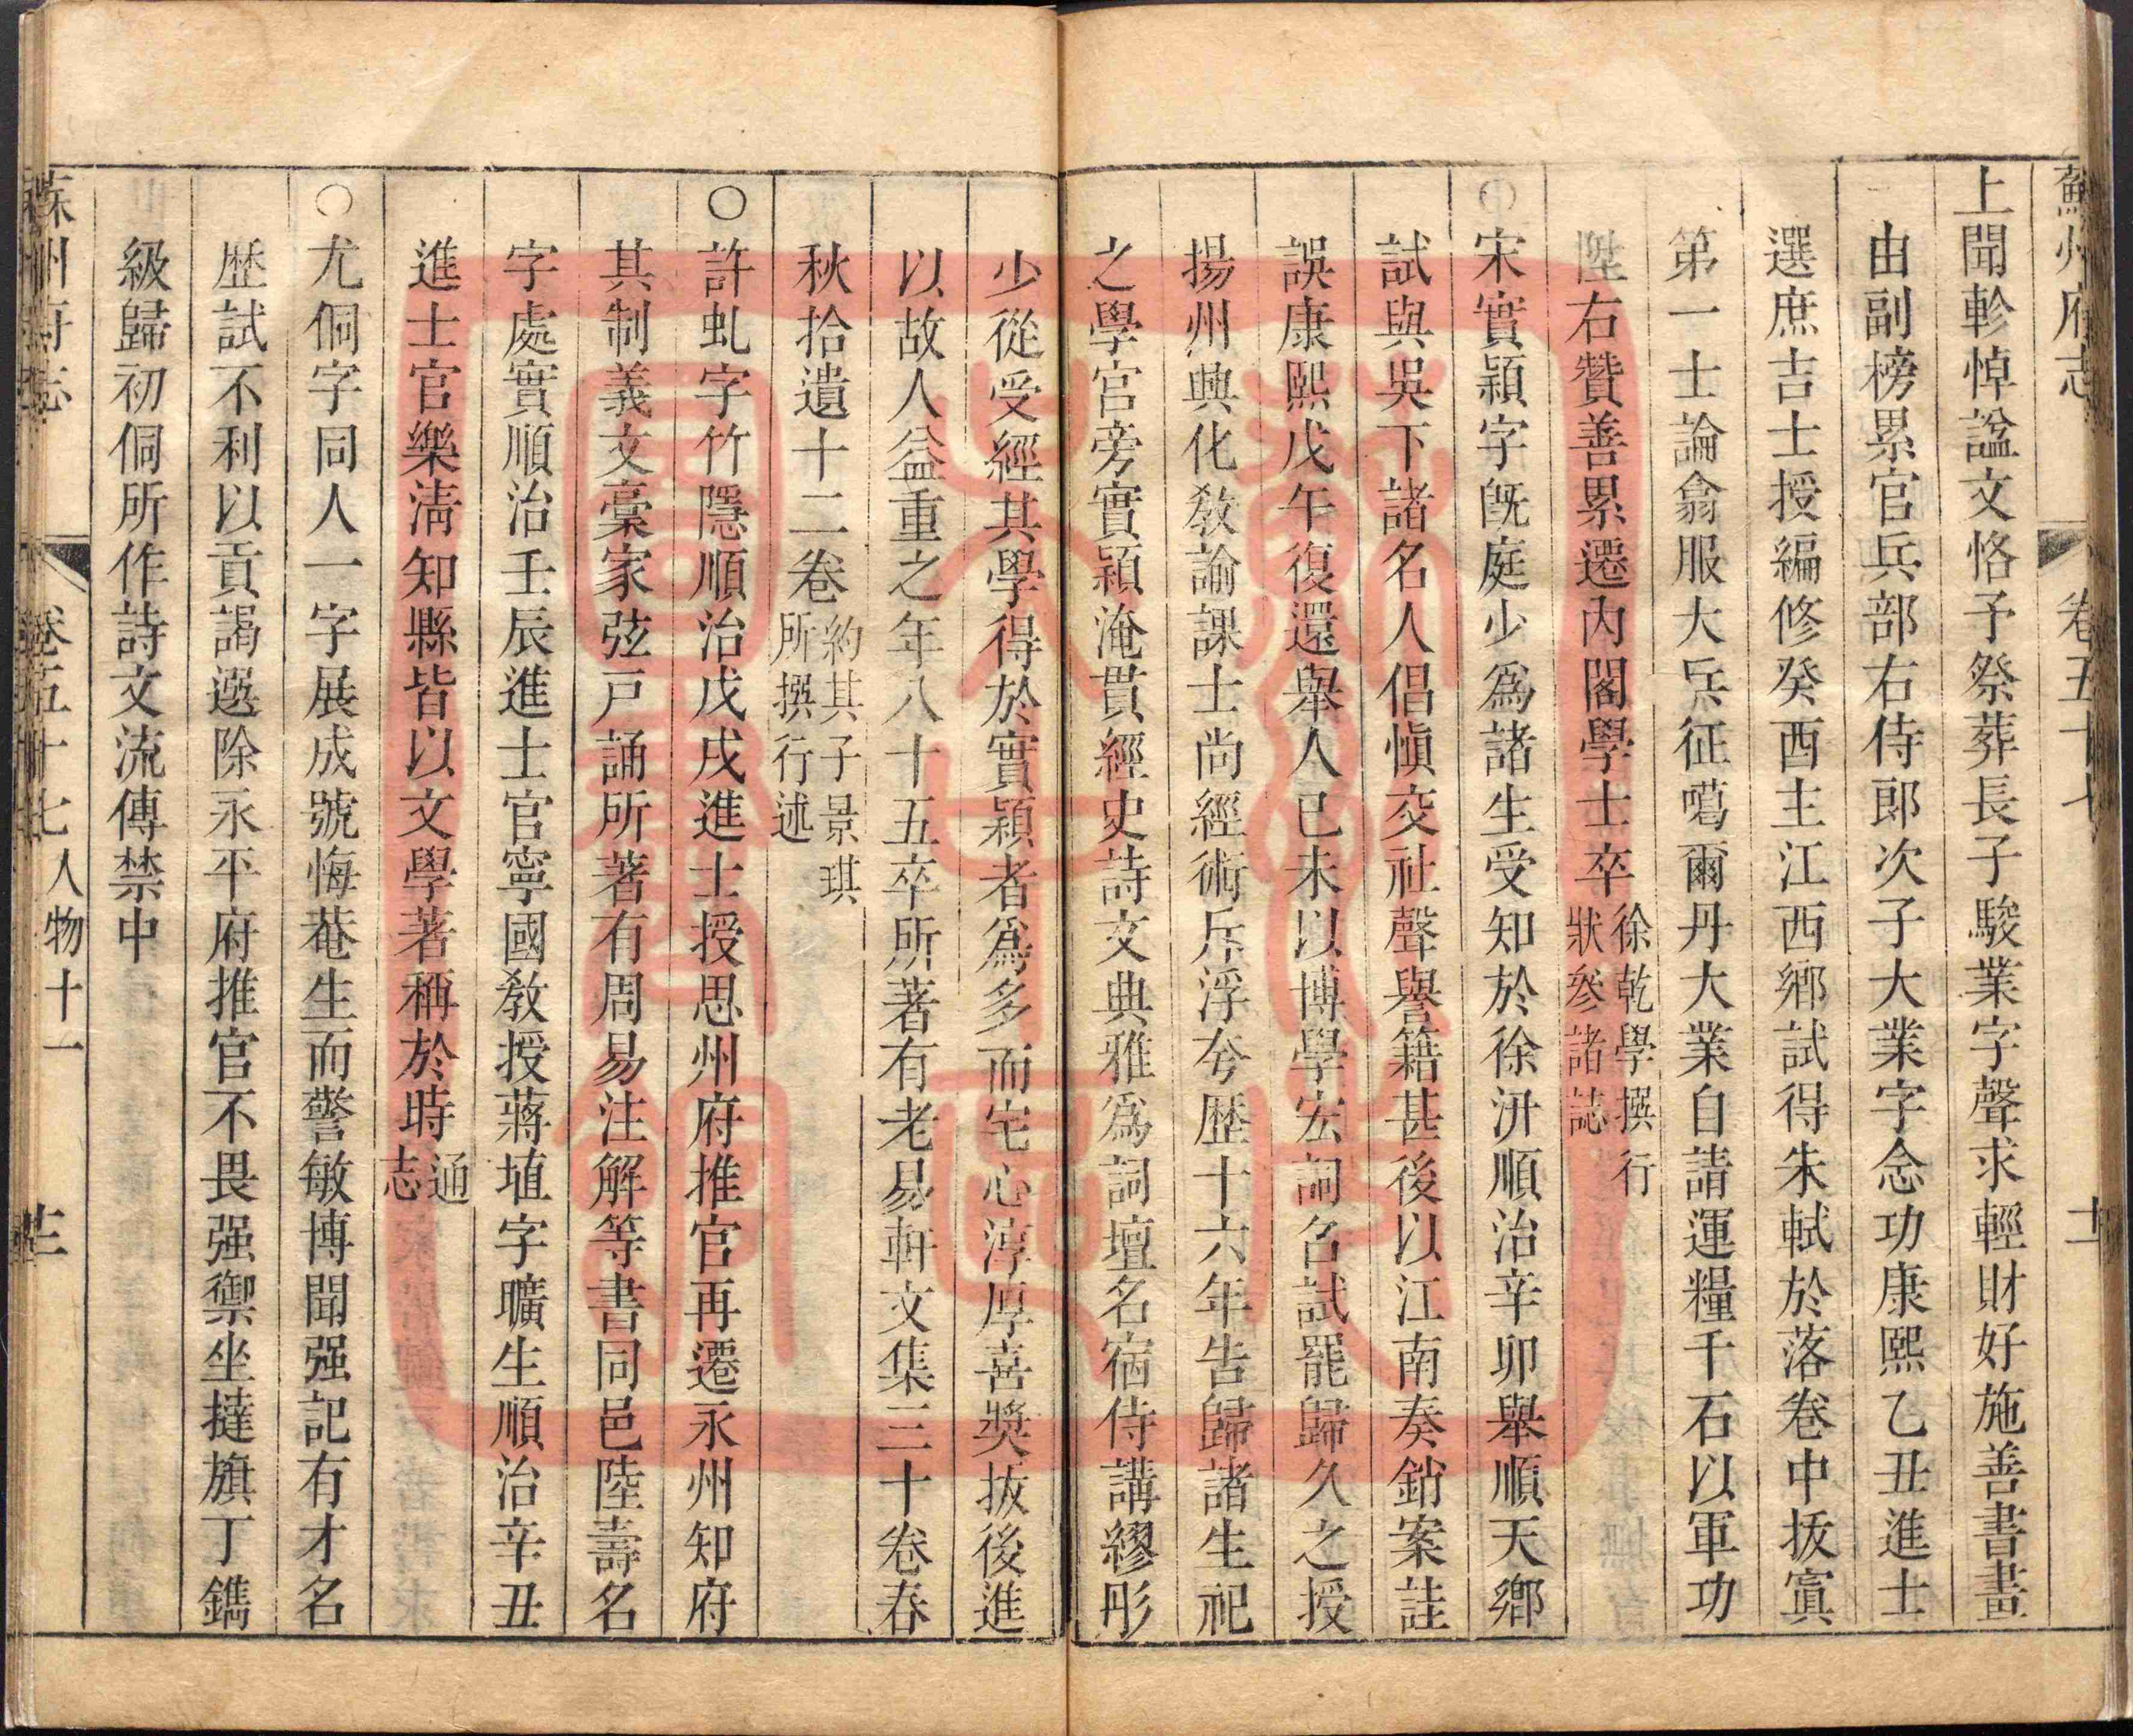 蘇州府志 卷五十七
上聞軫悼諡文恪予祭葬長子駿業字聲求輕財好施善書畫
由副榜累官兵部右侍郎次子大業字念功康熙乙丑進士
選庶吉士授編修癸酉主江西鄉試得朱軾於落卷中拔寘
第一士論翕服大兵征噶爾丹大業自請運糧千石以軍功
陞右贊善累遷內閣學士卒
徐乾學撰行
狀參諸誌
宋實穎字旣庭少爲諸生受知於徐汧順治辛卯舉順天鄉
試與吳下諸名人倡愼交社聲譽籍甚後以江南奏銷案詿
誤康熙戊午復還舉人已未以博學宏詞名試罷歸久之授
揚州興化敎諭課士尚經術斥浮夸歷十六年告歸諸生祀
之學宮旁實穎淹貫經史詩文典雅爲詞壇名宿侍講繆彤
少從受經其學得於實穎者爲多而宅心淳厚喜奬拔後進
以故人益重之年八十五卒所著有老易軒文集三十卷春
秋拾遺十二卷
約其子景琪
所撰行述
〇許虬字竹隱順治戊戌進士授思州府推官再遷永州知府
其制義文藁家弦戸誦所著有周易注解等書同邑陸壽名
字處實順治壬辰進士官寧國敎授蔣埴字曠生順治辛丑
進士官樂淸知縣皆以文學著稱於時
通
志
〇尤侗字同人一字展成號悔菴生而警敏博聞强記有才名
歷試不利以貢謁選除永平府推官不畏强禦坐撻旗丁鐫
級歸初侗所作詩文流傳禁中
蘇州府志 卷五十七 人物十一